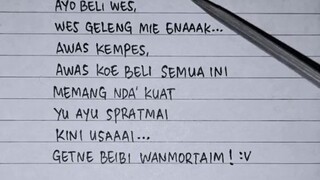 AYO BELI WES,
WES GELENG MIE ENAAAK...
AWAS KEMPES,
AWAS KOE BELI SEMUA INI
MEMANG NDA' KUAT
YU AYU SPRATMAI
KINI USAAAI...
GETNE BEIBI WANMORTAIM! :V